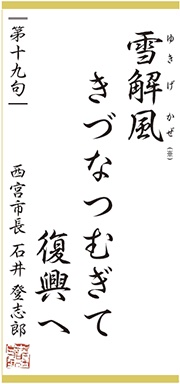 雪解風（※）
ゆきげかぜ
きづなつむぎて
復興へ
第十九句
西宮市長 石井 登志郎